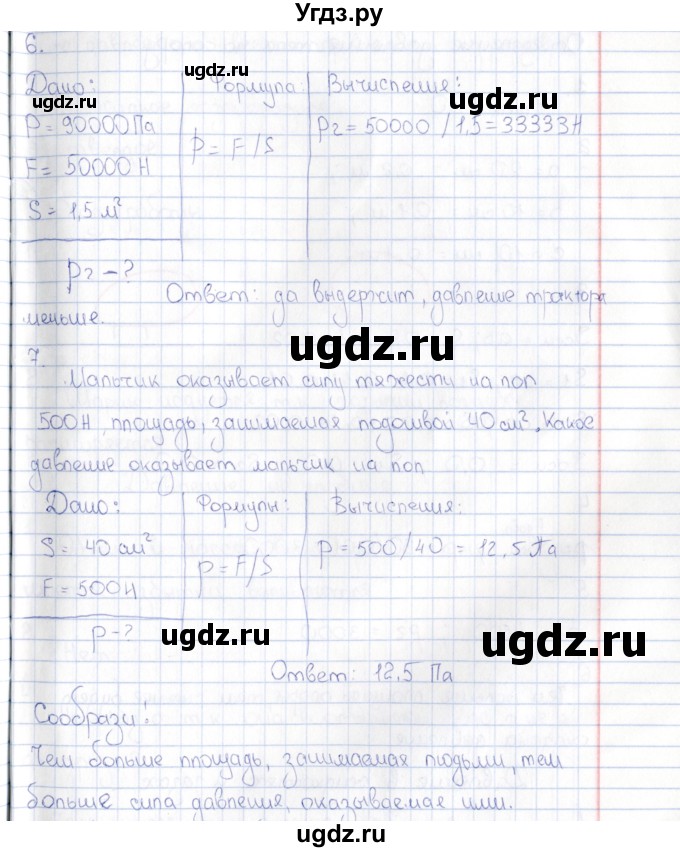 Угдз.ру
6.
ugdz.ru
Дано: Формула: Вычисления:
ugdz.ru ugdz.ru
P = 90000 Па P2 = 50000 / 1,5 = 33333 Н
F = 50000 Н P = F/S
ugdz.ru
S = 1,5 м²
P2 - ?
ugdz.ru
Ответ: да выдержит, давление трактора
меньше.
ugdz.ru
7.
Мальчик оказывает силу тяжести на пол
500 Н, площадь, занимаемая подошвой 40 см². Какое
ugdz.ru
давление оказывает мальчик на пол
Дано: Формулы: Вычисления:
ugdz.ru
S = 40 см² P = 500/40 = 12,5 Па
F = 500 Н P = F/S
P - ?
ugdz.ru ugdz.ru
Ответ: 12.5 Па
Сообрази!
ugdz.ru
Чем больше площадь, занимаемая людьми, тем
больше сила давления, оказываемая ими.
ugdz.ru